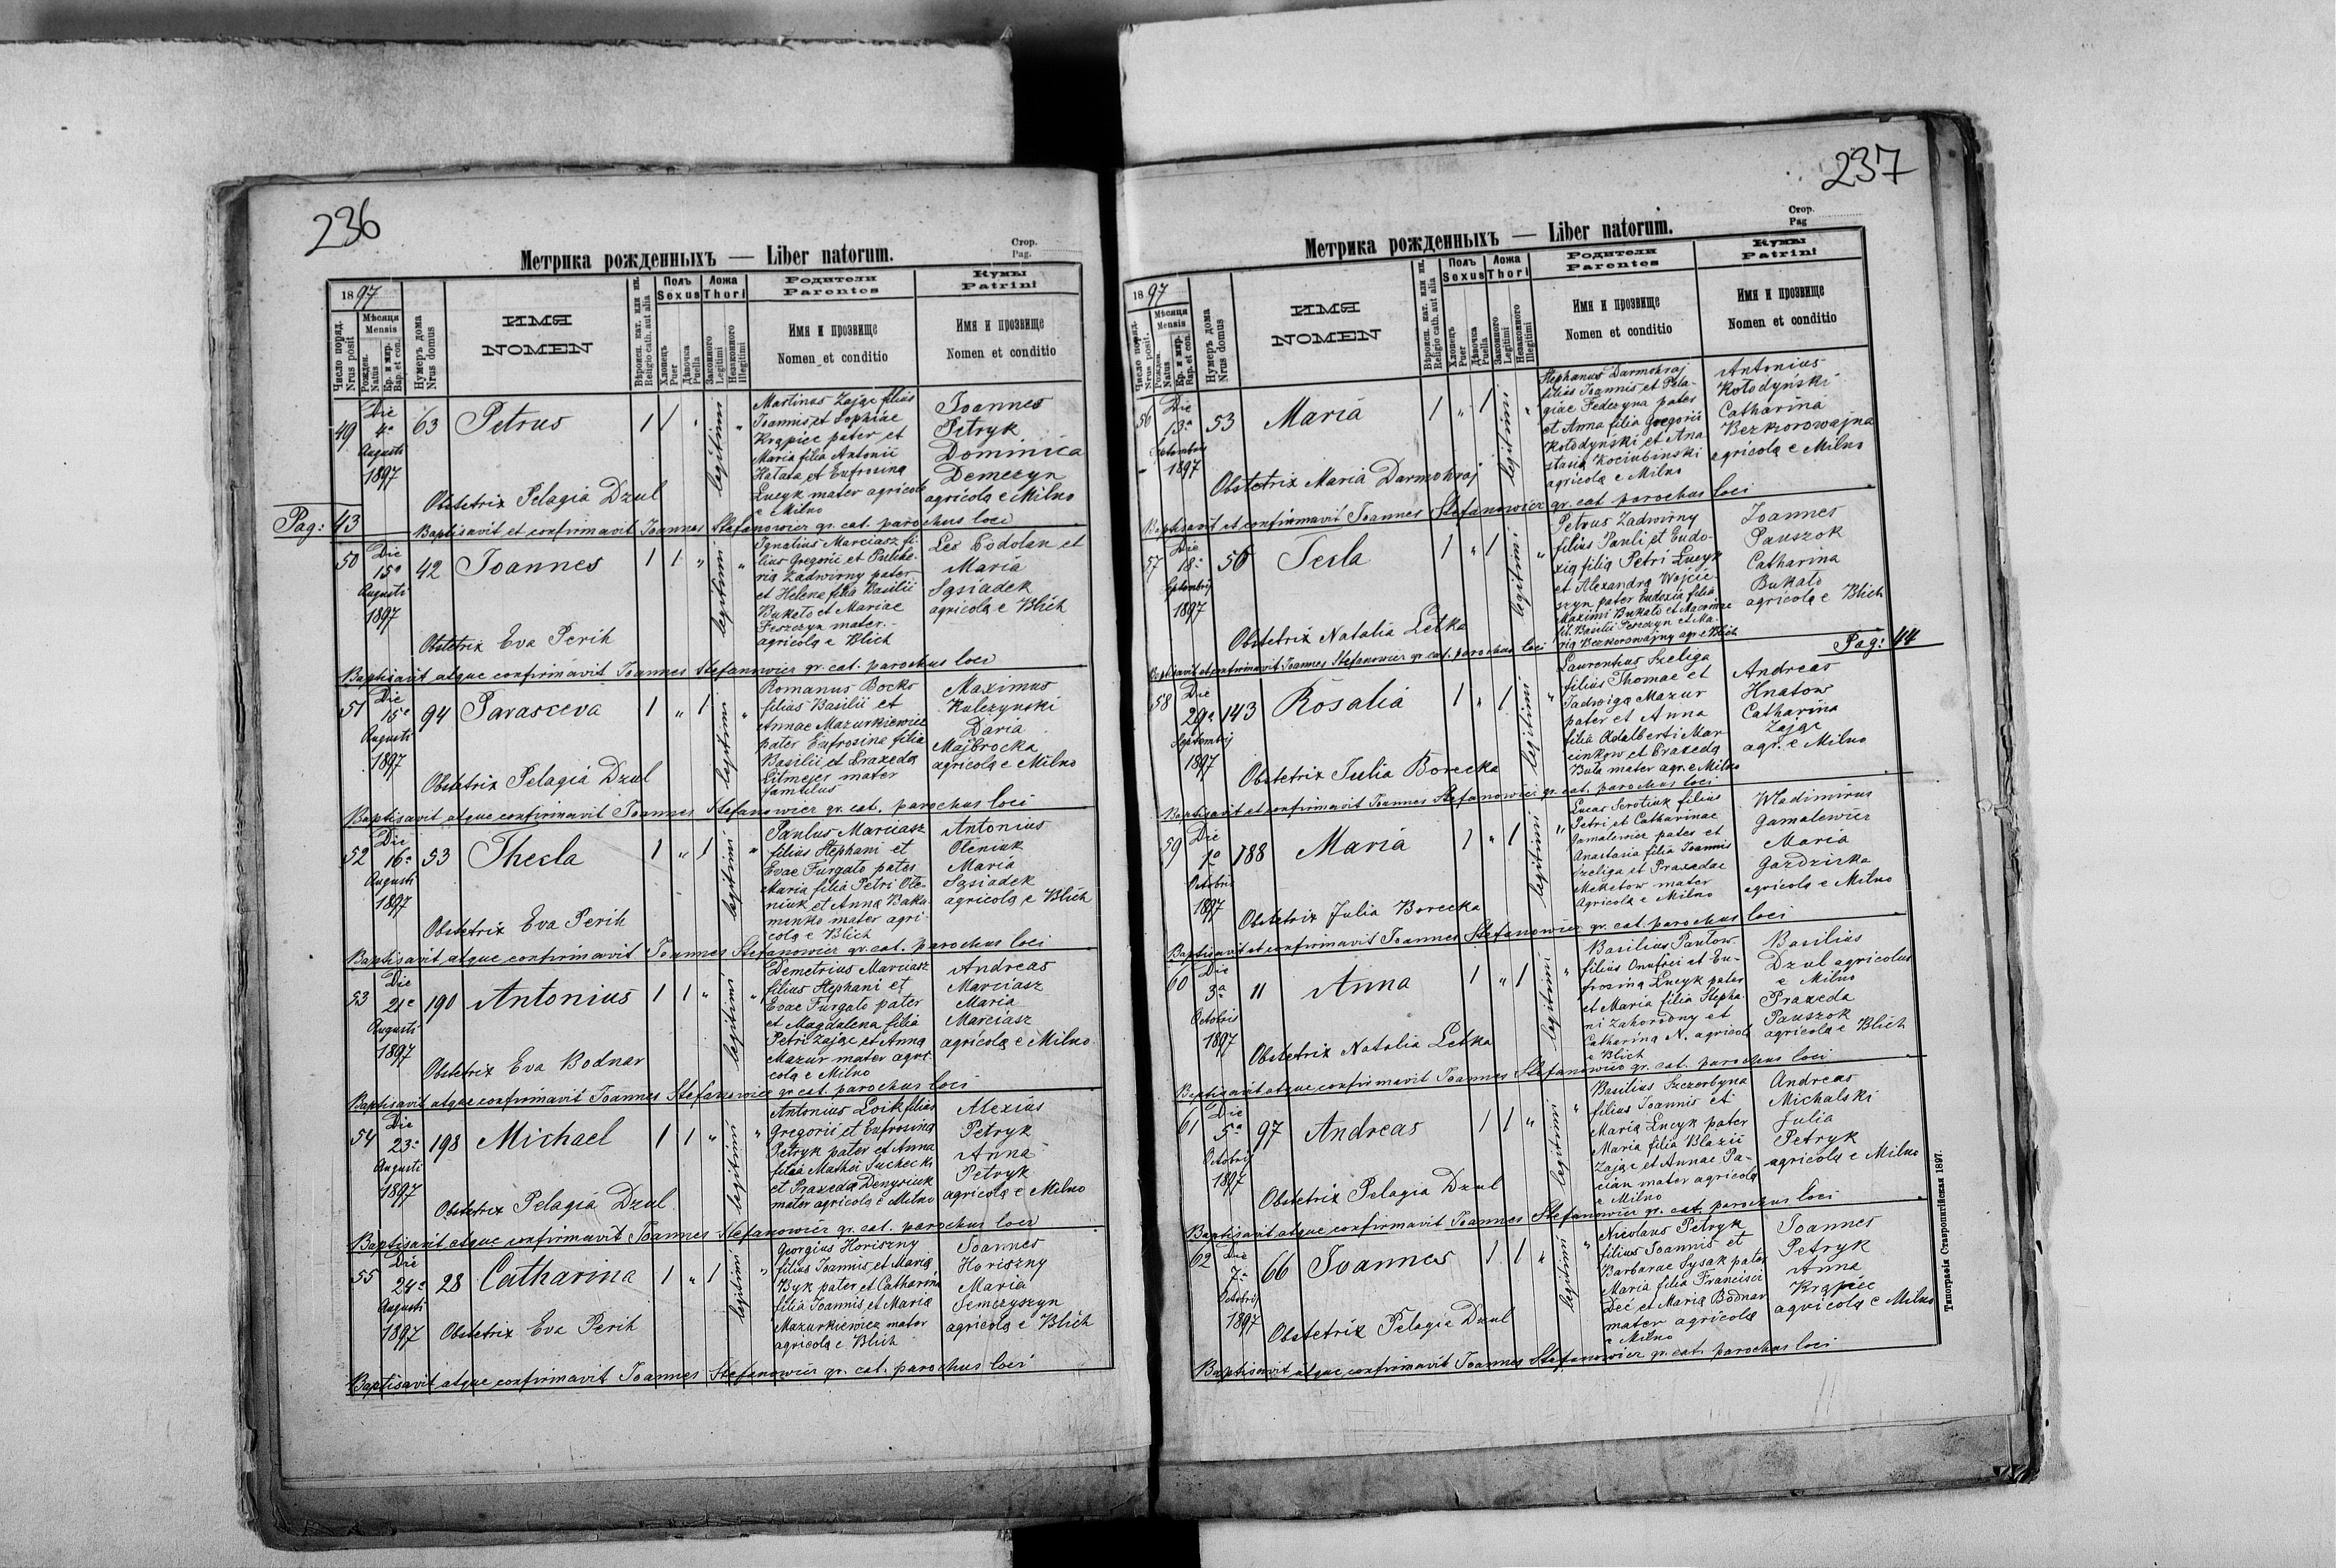 236
Стор.
Pag.
Метрика рожденныхъ — Liber natorum.
1897
Число поряд.
Nrus posit
Мѣсяця
Mensis
Рожден.
Natus
Кр. и мир.
Bap. et con.
Нумеръ дома
Nrus domus
ИМЯ
NOMEN
Вѣроисп. кат. или ин.
Religio cath. aut alia
Полъ
Sexus
Хлопецъ
Puer
Дѣвочка
Puella
Ложа
Thori
Законного
Legitimi
Незаконного
Illegitimi
Родители
Parentes
Имя и прозвище
Nomen et conditio
Кумы
Patrini
Имя и прозвище
Nomen et conditio
49 Die 4a Augusti 1897 63 Petrus 1 1 " legitimi "
Martinus Zając filius
Joannis et Sophiae
Krąpiec pater et
Maria filia Antonii
Hałata et Eufrosina
Łucyk mater agricolę
e Milno
Joannes
Petryk
Dominica
Demczyn
agricolę e Milno
Obstetrix Pelagia Dzul
Pag: 43
Baptisavit et confirmavit Joannes Stefanowicz gr. cat. parochus loci
50 Die 15a Augusti 1897 42 Joannes 1 1 " legitimi "
Ignatius Marciasz fi-
lius Gregorii et
Zadwirny pater
et Helena filia Basilii
Bukało et Mariae
Feszczyn mater.-
agricolę e Blich
Les Podolan et
Maria
Sąsiadek
agricolę e Blich
Obstetrix Eva Perih
Baptisavit atque confirmavit Joannes Stefanowicz gr. cat. parochus loci
51 Die 15a Augusti 1897 94 Parasceva 1 " 1 legitimi "
Romanus Bocko
filius Basilii et
Annae Mazurkiewicz
pater Eufrosina filia
Basilii et Praxeda
mater
famulus
Maximus
Kulczynski
Daria
Majbrocka
agricolę e Milno
Obstetrix Pelagia Dzul
Baptisavit atque confirmavit Joannes Stefanowicz gr. cat. parochus loci
52 Die 16a Augusti 1897 53 Thecla 1 " 1 legitimi "
Paulus Marciasz
filius Stephani et
Evae Furgato pater
Maria filia Petri Ole-
niuk et Anna Baka-
menko mater agri-
colę e Blich
Antonius
Oleniuk
Maria
Sąsiadek
agricolę e Blich
Obstetrix Eva Perih
Baptisavit atque confirmavit Joannes Stefanowicz gr. cat. parochus loci
53 Die 21a Augusti 1897 190 Antonius 1 1 " legitimi "
Demetrius Marciasz
filius Stephani et
Evae Furgato pater
et Magdalena filia
Petri Zając et Anna
Mazur mater agri-
colę e Milno
Andreas
Marciasz
Maria
Marciasz
agricolę e Milno
Obstetrix Eva Bodnar
Baptisavit atque confirmavit Joannes Stefanowicz gr cat. parochus loci
54 Die 23a Augusti 1897 198 Michael 1 1 " legitimi "
Antonius Łoik filius
Gregorii et Eufrosina
Petryk pater et Anna
filia Mathei Suchecki
et Praxeda Denysiuk
mater agricolę e Milno
Alexius
Petryk
Anna
Petryk
agricolę e Milno
Obstetrix Pelagia Dzul
Baptisavit atque confirmavit Joannes Stefanowicz gr. cat. parochus loci
55 Die 24a Augusti 1897 28 Catharina 1 " 1 legitimi "
Georgius Horiszny
filius Joannis et Maria
Byk pater et Catharina
filia Joannis et Maria
Mazurkiewicz mater
agricolę e Blich
Joannes
Horiszny
Maria
Semczyszyn
agricolę e Blich
Obstetrix Eva Perih
Baptisavit atque confirmavit Joannes Stefanowicz gr. cat. parochus loci
237
Стор.
Pag
Метрика рожденныхъ — Liber natorum.
1897
Число поряд.
Nrus posit.
Мѣсяця
Mensis
Рожден.
Natus
Кр. и мир.
Bap. et con.
Нумеръ дома
Nrus domus
ИМЯ
NOMEN
Вѣроисп. кат. или ин.
Religio cath. aut alia
Полъ
Sexus
Хлопецъ
Puer
Дѣвочка
Puella
Ложа
Thori
Законного
Legitimi
Незаконного
Illegitimi
Родители
Parentes
Имя и прозвище
Nomen et conditio
Кумы
Patrini
Имя и прозвище
Nomen et conditio
56 Die 13a Septembris 1897 53 Maria 1 " 1 legitimi "
Stephanus Darmohraj
filius Joannis et Pela-
giae Fedczyna pater
et Anna filia Gregorii
Kołodyński et Ana
stasia Kociubinski
agricolę e Milno
Antonius
Kołodyński
Catharina
Bezkorowajna
agricolę e Milno
Obstetrix Maria Darmohraj
Baptisavit et confirmavit Joannes Stefanowicz gr. cat parochus loci
57 Die 18a Septembris 1897 56 Tecla 1 " 1 legitimi "
Petrus Zadwirny
filius Pauli et Eudo-
xia filia Petri Łucyk
et Alexandra Wojcie-
szyn pater Eudoxia filia
Maximi Bukało et
fil. Basilii Feszczyn et Ma-
ria Bezkorowajny agr. e Blich
Joannes
Pauszok
Catharina
Bukało
agricolę e Blich
Obstetrix Natalia Letka
Baptisavit et confirmavit Joannes Stefanowicz gr. cat. parochus loci
Pag: 44
58 Die 29a Septembris 1897 143 Rosalia 1 " 1 legitimi "
Laurentius Szeliga
filius Thomae et
Jadwiga Mazur
pater et Anna
filia Adalberti Mar
cinkow et Praxeda
Buła mater agr. e Milno
Andreas
Hnatow
Catharina
Zając
agr. e Milno
Obstetrix Julia Borecka
Baptisavit et confirmavit Joannes Stefanowicz gr. cat. parochus loci
59 Die 1a Octobris 1897 188 Maria 1 " 1 legitimi "
Lucas Serotiuk filius
Petri et Catharinae
Gamalewicz pater et
Anastasia filia Joannis
Szeliga et Praxedae
Meketow mater
Agricolę e Milno
Wladimirus
Gamalewicz
Maria
Gazdzicka
agricolę e Milno
Obstetrix Julia Borecka
Baptisavit et confirmavit Joannes Stefanowicz gr. cat. parochus loci
60 Die 3a Octobris 1897 11 Anna 1 " 1 legitimi "
Basilius Pantow
filius Onufrei et Eu-
frosina Łucyk pater
et Maria filia Stepha-
ni Zahorodny et
Catharina N. agricolę
e Blich
Basilius
Dzul agricolus
e Milno
Praxeda
Pauszok
agricolę e Blich
Obstetrix Natalia Letka
Baptisavit atque confirmavit Joannes Stefanowicz gr. cat. parochus loci
61 Die 5a Octobris 1897 97 Andreas 1 1 " legitimi "
Basilius Szczerbyna
filius Joannis et
Maria Łucyk pater
Maria filia Blazii
Zając et Annae Pa-
cian mater agricolę
e Milno
Andreas
Michalski
Julia
Petryk
agricolę e Milno
Obstetrix Pelagia Dzul
Baptisavit atque confirmavit Joannes Stefanowicz gr. cat. parochus loci
62 Die 7a Octobris 1897 66 Joannes 1 1 " legitimi "
Nicolaus Petryk
filius Joannis et
Barbarae Sysak pater
Maria filia Francisci
Deć et Maria Bodnar
mater agricolę
e Milno
Joannes
Petryk
Anna
Krąpiec
agricolę e Milno
Obstetrix Pelagia Dzul
Baptisavit atque confirmavit Joannes Stefanowicz gr. cat. parochus loci
Типографія Ставропигійская 1897.